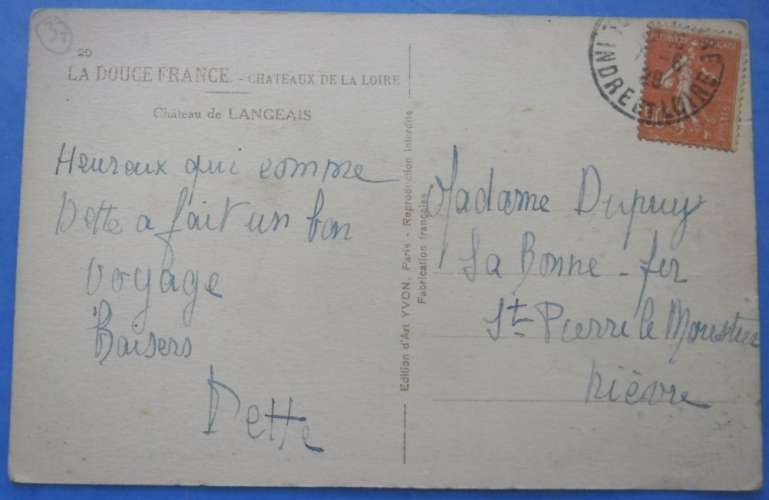 37
20
LA DOUCE FRANCE. - CHATEAUX DE LA LOIRE
Château de LANGEAIS
Heureux qui comme
Dette a fait un bon
voyage
Baisers
Dette
Edition d'Art YVON, Paris - Reproduction interdite
Fabrication française
INDRE ET LOIRE
Madame Dupuy
La Bonne-fer
St-Pierre le Moustier
Nièvre